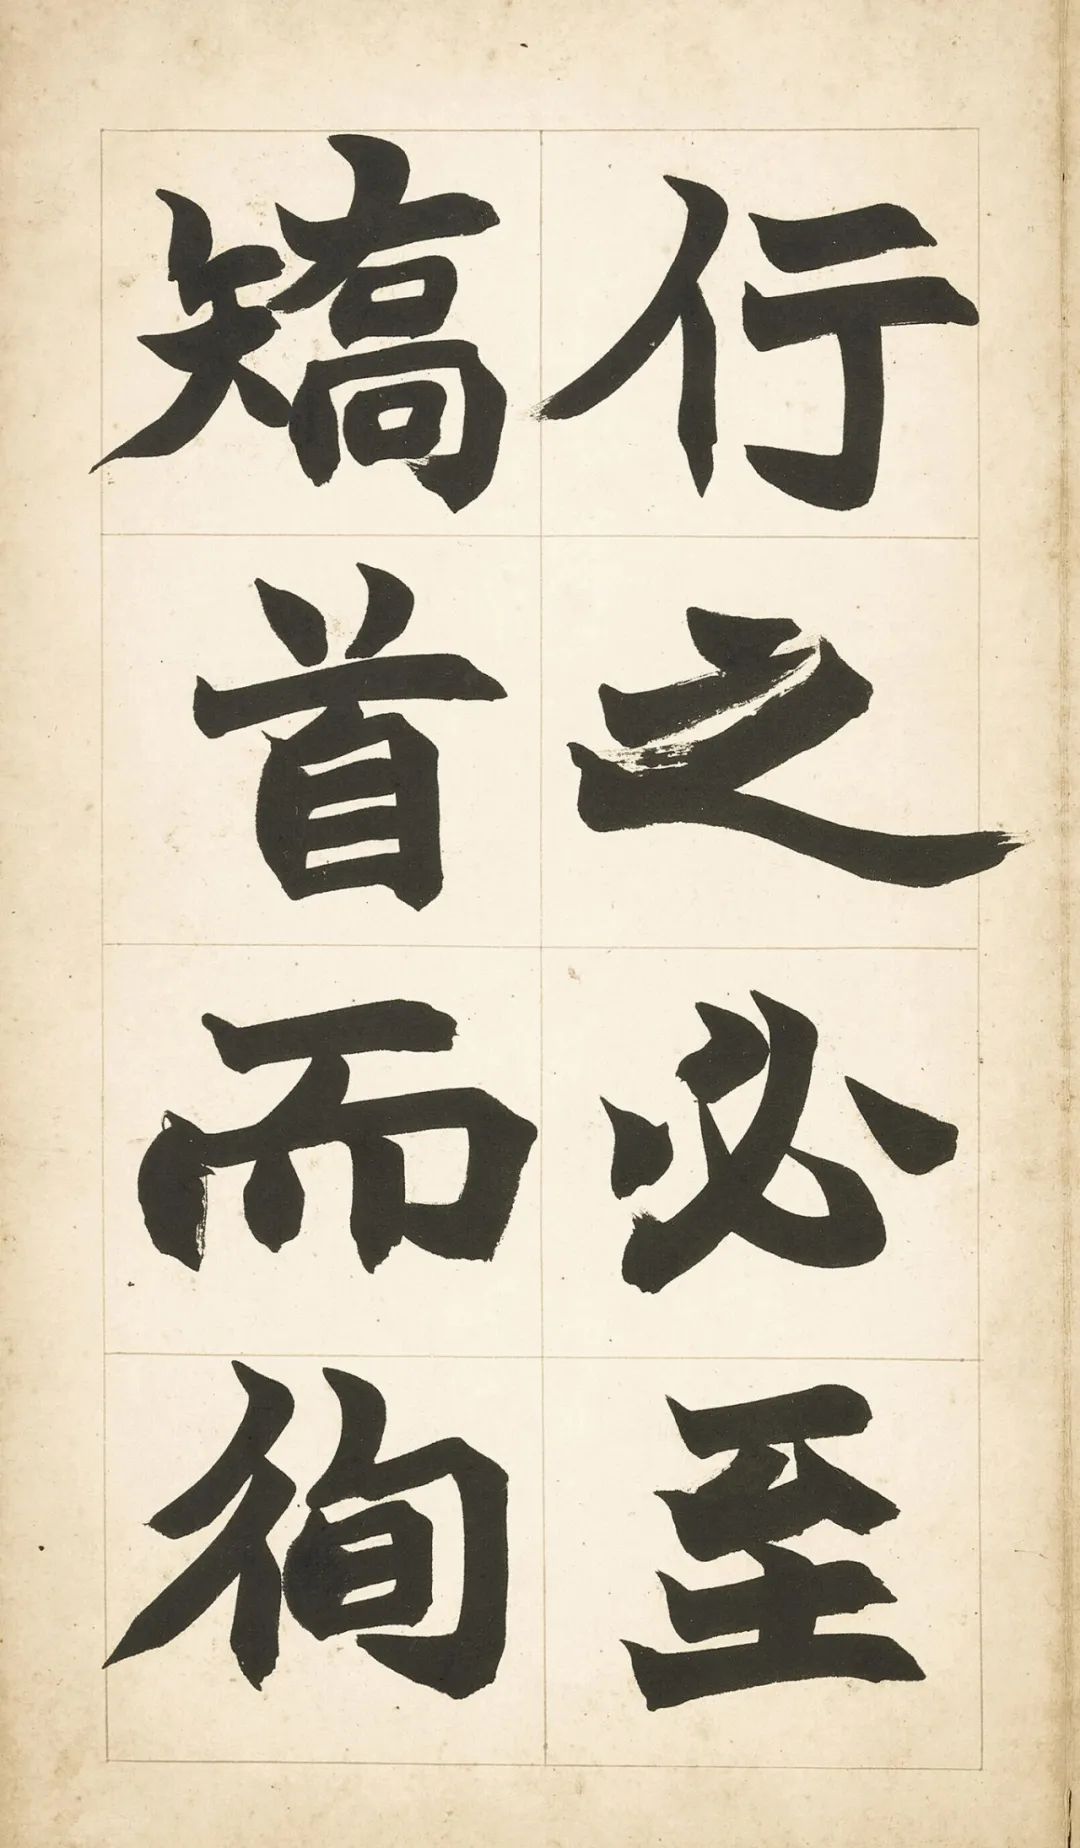 行之必至
矯首而徇